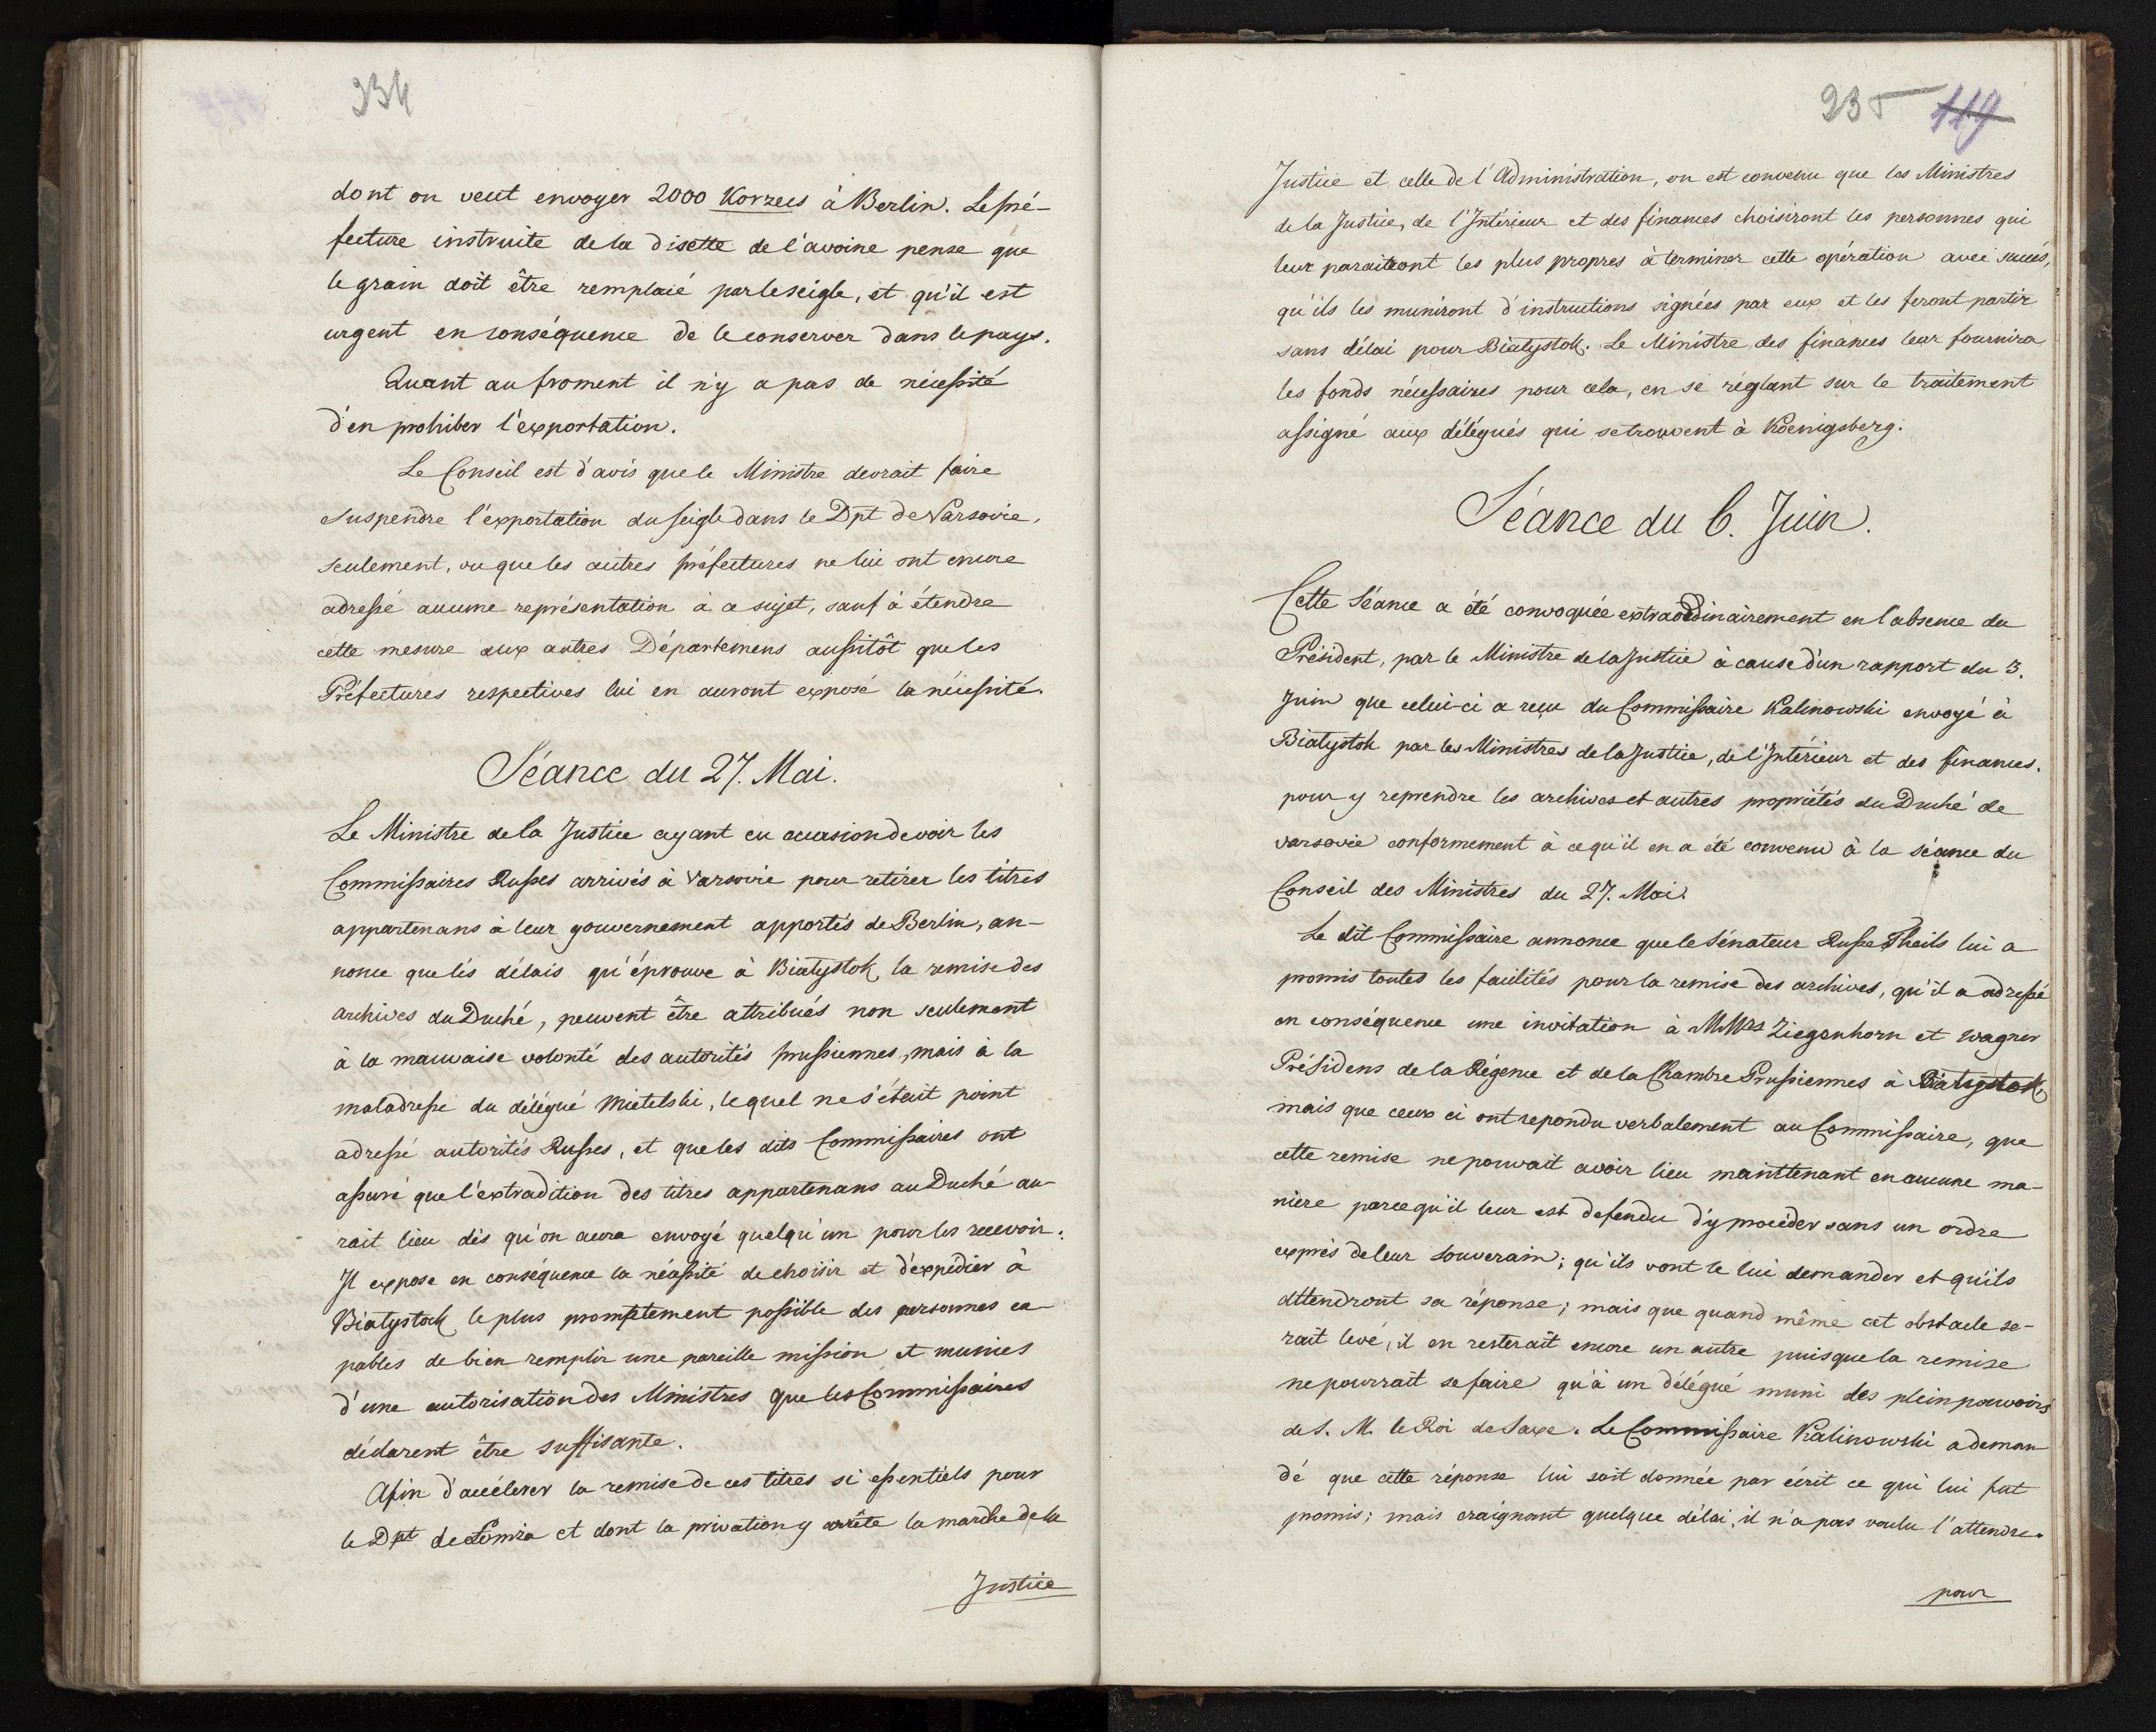 234
dont on veut envoyer 2000 Korzecs à Berlin. Le pré-
fecture instruite de la disette de l'avoine pense que
le grain doit être remplacé par le seigle, et qu'il est
urgent en conséquence de le conserver dans le pays.
Quant au froment il n'y a pas de nécessité
d'en prohiber l'exportation.
Le Conseil est d'avis que le Ministre devrait faire
suspendre l'exportation du seigle dans le Dpt de Varsovie,
seulement, vu que les autres préfectures ne lui ont encore
adressé aucune représentation à ce sujet, sauf à étendre
cette mesure aux autres Départemens aussitôt que les
Préfectures respectives lui en auront exposé la nécessité.
Séance du 27. Mai.
Le Ministre de la Justice ayant eu occasion de voir les
Commissaires Russes arrivés à Varsovie pour retirer les titres
appartenans à leur gouvernement apportés de Berlin, an-
nonce que les délais qu'éprouve à Białystok la remise des
archives du Duché, peuvent être attribués non seulement
à la mauvaise volonté des autorités prussiennes, mais à la
maladresse du délégué Mietelski, lequel ne s'était point
adressé autorités Russes, et que les dits Commissaires ont
assuré que l'extradition des titres appartenans au Duché au-
rait lieu dès qu'on aura envoyé quelqu'un pour les recevoir.
Il expose en conséquence la nécessité de choisir et d'expédier à
Białystok le plus promptement possible des personnes ca-
pables de bien remplir une pareille mission et munies
d'une autorisation des Ministres que les Commissaires
déclarent être suffisante.
Afin d'accélerer la remise de ces titres si essentiels pour
le Dpt de Łomża et dont la privation y arrête la marche de la
Justice
235 119
Justice et celle de l'Administration, on est convenu que les Ministres
de la Justice, de l'Intérieur et des finances choisiront les personnes qui
leur paraitront les plus propres à terminer cette opération avec succés,
qu'ils les muniront d'instructions signées par eux et les feront partir
sans délai pour Białystok. Le Ministre des finances leur fournira
les fonds nécessaires pour cela, en se réglant sur le traitement
assigné aux délégués qui se trouvent à Koenigsberg.
Séance du 6. Juin.
Cette Séance a été convoquée extraordinairement en l'absence du
Président, par le Ministre de la Justice à cause d'un rapport du 3.
Juin que celui-ci a reçu du Commissaire Kalinowski envoyé à
Białystok par les Ministres de la Justice, de l'Intérieur et des finances.
pour y reprendre les archives et autres propriétés du Duché de
Varsovie conformement à ce qu'il en a été convenu à la séance du
Conseil des Ministres du 27. Mai.
Le dit Commissaire annonce que le Sénateur Russe Theils lui a
promis toutes les facilités pour la remise des archives, qu'il a adressé
en conséquence une invitation à MMrs Ziegenhorn et Wagner
Présidens de la Régence et de la Chambre Prussiennes à Białystok,
mais que ceux ci ont repondu verbalement au Commissaire, que
cette remise ne pouvait avoir lieu mainttenant en aucune ma-
nière parce qu'il leur est defendu d'y procéder sans un ordre
exprès de leur Souverain; qu'ils vont le lui demander et qu'ils
attendront sa réponse; mais que quand même cet obstacle se-
rait levé, il en resterait encore un autre puisque la remise
ne pourrait se faire qu'à un délégué muni des plein pouvoirs
de S. M. le Roi de Saxe. Le Commissaire Kalinowski a deman
dé que cette réponse lui soit donnée par écrit ce qui lui fut
promis; mais craignant quelque délai, il n'a pas voulu l'attendre.
pour